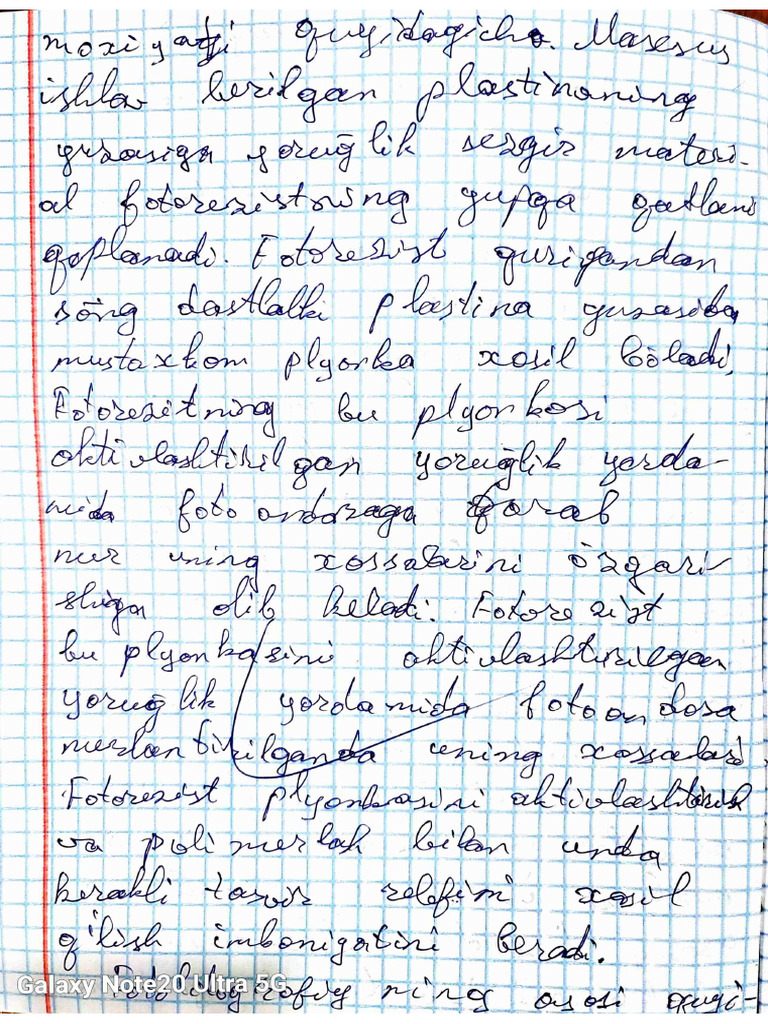 moxiyati quyidagicha. Maxsus
ishlov berilgan plastinaning
yuzasiga yorug'lik sezgir materi-
al fotorezistning yupqa qatlami
qoplanadi. Fotorezist qurigandan
so'ng dastlabki plastina yuzasida
mustaxkam plyonka xosil bo'ladi,
Fotorezitning bu plyonkasi
aktivlashtirilgan yorug'lik yorda-
mida foto andazaga qarab
nur uning xossalarini o'zgari-
shiga olib keladi. Fotorezist
bu plyonkasini aktivlashtirilgan
yorug'lik yordamida fotoandoza
nurlantirilganda uning xossalari
Fotorezist plyonkasini aktivlashtirish
va polimerlah bilan unda
kerakli tasvir relefini xosil
q'ilish imboniyatini beradi.
Fotolitografiyning asosi quyi-
Galaxy Note20 Ultra 5G